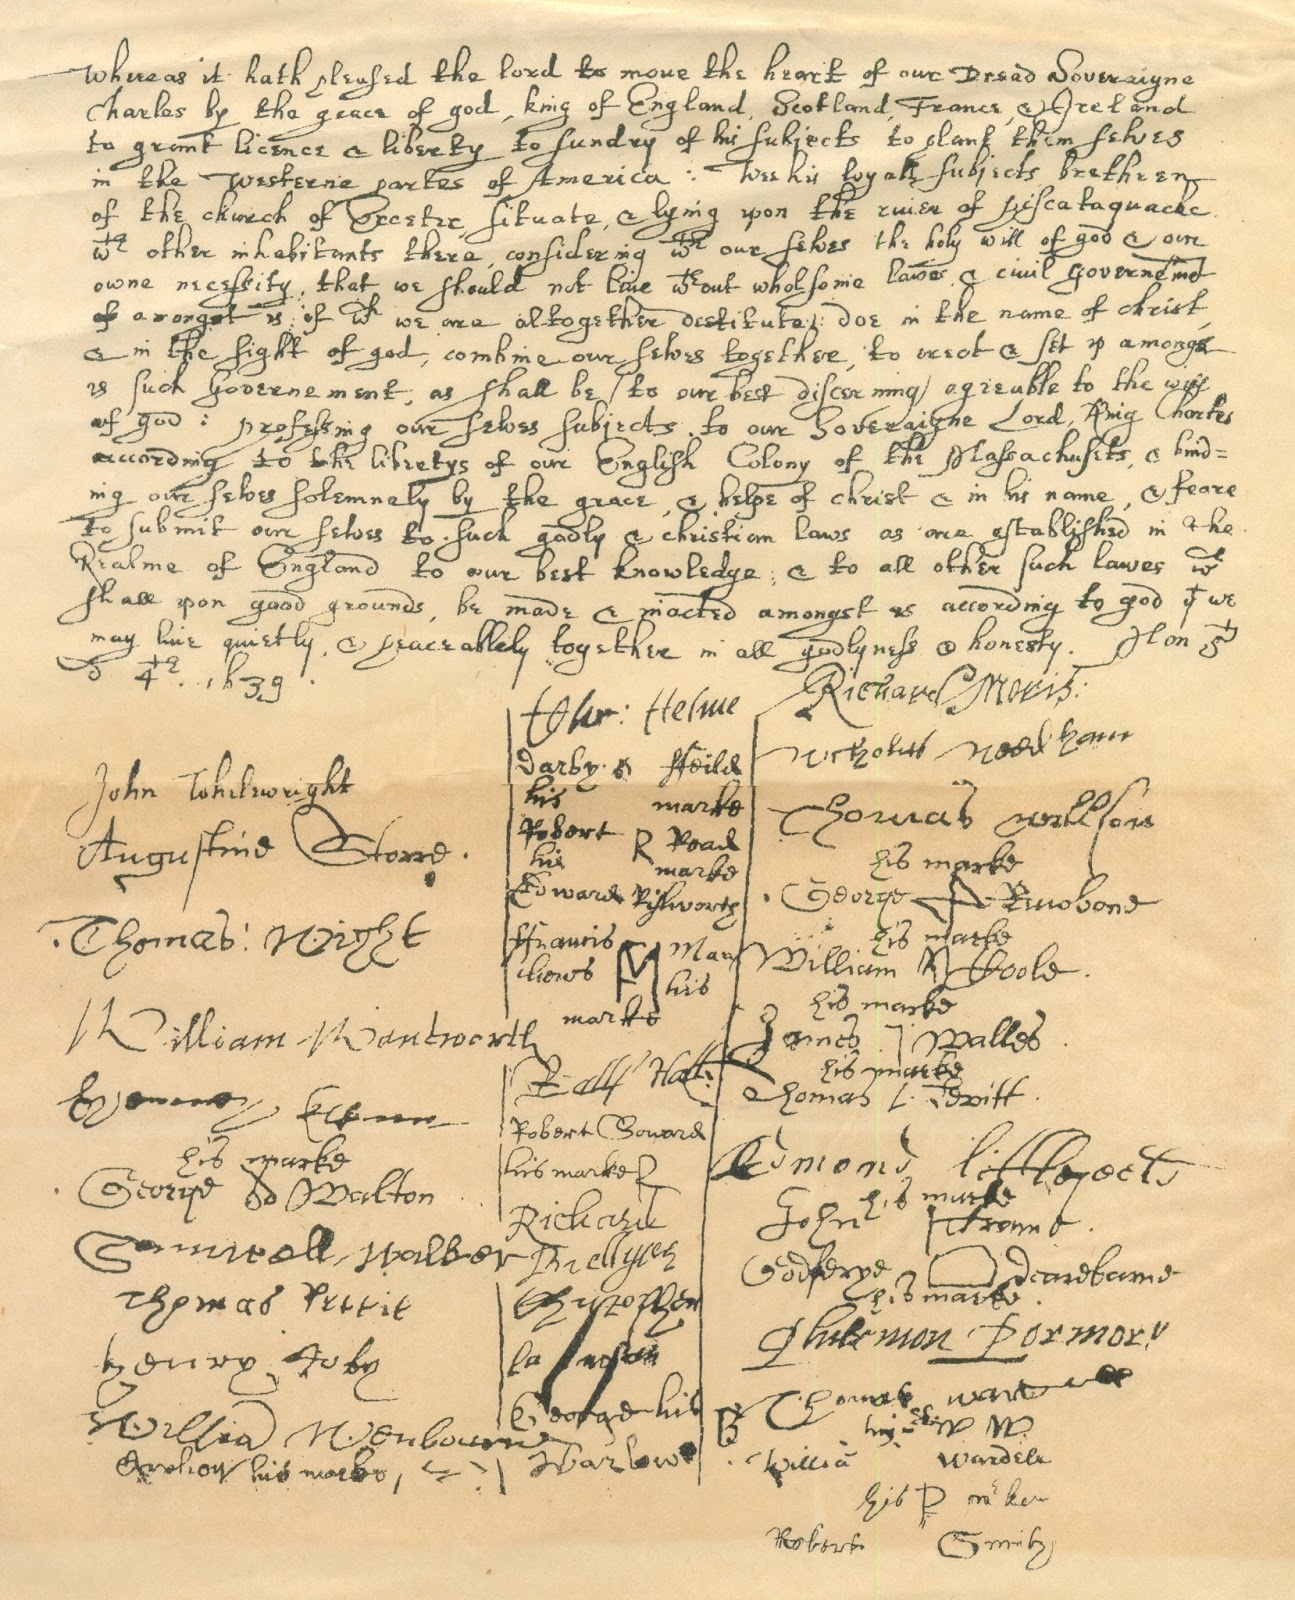 Whereas it hath pleased the lord to moue the heart of our Dread Soveraigne
Charles by the grace of god, king of England, Scotland, France, & Ireland
to grant licence & liberty to sundry of his subjects to plant them selves
in the westerne partes of America : Wee his loyall subjects brethren
of the church of Exceter, situate, & lying upon the riuer of piscataquacke
wth other inhabitants there, considering wth our selves the holy will of god & our
owne necessity, that we should not liue wthout wholsome lawes & civil governement
amongst us, of wch we are altogether destitute : doe in the name of christ,
& in the sight of god, combine our selves together, to erect & set up amongst
us such Governement, as shall be (to our best discerning) agreuable to the will
of god : professing our selves subjects to our Soveraigne Lord, King Charles
according to the libertys of our English Colony of the Massachusets, & bind=
ing our selves solemnely by the grace, & helpe of christ & in his name, & feare
to submit our selves to such godly & christian laws as are established in the
Realme of England to our best knowledge; & to all other such lawes wch
shall upon good grounds, be made & inacted amongst us according to god yt we
may liue quietly, & peaceablely together in all godlyness & honesty.
4th. 1639.
John Whelewright
Augustine Storre.
Thomas: Wight
William Wantworth
his marke
George Walton
Samuell Walker
Thomas Pettit
Henry Roby
Willia Wenbourn
his marke,
Tho: Helme
Darby Ffeild
his marke
Robert R Read
his marke
Edward Rishworth
Ffrancis Mathews
his marke
Ralf Hall:
Robert Soward
his marke
Richard Bullgar
Christopher Lawson
George Barlow
his
Richard Moris:
Nicholas Needham
Thomas Willson
his marke
George Ruobone
his marke
William Coole.
his marke
James Walles.
his marke
Thomas L. Levitt.
Edmond Littlefield
his marke
John Crame.
Godferye Dearebarne
his marke.
Philemon Pormort
Thomas Wardell
his W W.
Willia Wardell
his P
Robert Smith